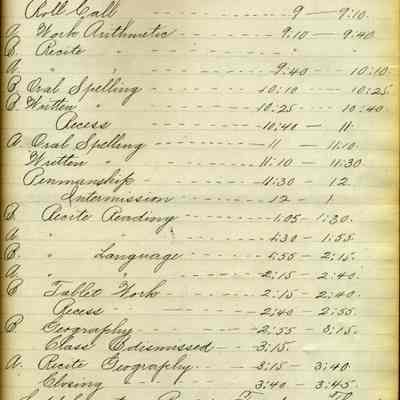 Roll Call - - - - 9 — 9:10.
A. Work Arithmetic - - - - 9:10 — 9:40
B. Recite " - - - - " "
A. " " - - - - 9:40 - - 10:10.
B. Oral Spelling - - - - 10:10 - - - 10:25
B. Written " - - - - 10:25 - - - 10:40
Recess - - - - 10:40 — 11.
A. Oral Spelling - - - - 11 — 11:10.
Written " - - - - 11:10 — 11:30
Penmanship - - - - 11:30 - 12.
Intermission - - - - 12 - 1
B. Recite Reading - - - - 1:05 - 1:30.
A " " - - - - 1:30 - 1:55.
B " Language - - - - 1:55 - 2:15.
A " " - - - - 2:15 - 2:40.
B Tablet Work - - - - 2:15 - 2:40.
Recess - - - - 2:40 - 2:55.
B Geography - - - - 2:55 - 3:15.
Class B dismissed - - - 3:15.
A. Recite Geography - - - 3:15 - 3:40
Closing - - - - 3:40 - 3:45.